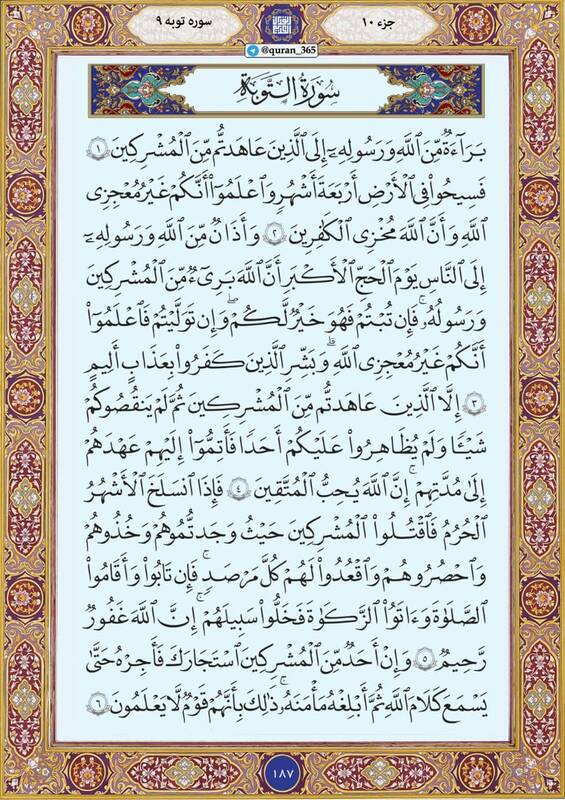 جزء ۱۰
سوره توبه ۹
@quran_365
سُورَةُ التَّوبَةِ
بَرَآءَةٌ مِّنَ ٱللَّهِ وَرَسُولِهِۦٓ إِلَى ٱلَّذِينَ عَٰهَدتُّم مِّنَ ٱلْمُشْرِكِينَ ۱
فَسِيحُوا۟ فِى ٱلْأَرْضِ أَرْبَعَةَ أَشْهُرٍ وَٱعْلَمُوٓا۟ أَنَّكُمْ غَيْرُ مُعْجِزِى
ٱللَّهِ وَأَنَّ ٱللَّهَ مُخْزِى ٱلْكَٰفِرِينَ ۲ وَأَذَٰنٌ مِّنَ ٱللَّهِ وَرَسُولِهِۦٓ
إِلَى ٱلنَّاسِ يَوْمَ ٱلْحَجِّ ٱلْأَكْبَرِ أَنَّ ٱللَّهَ بَرِىٓءٌ مِّنَ ٱلْمُشْرِكِينَ
وَرَسُولُهُۥ ۚ فَإِن تُبْتُمْ فَهُوَ خَيْرٌ لَّكُمْ ۖ وَإِن تَوَلَّيْتُمْ فَٱعْلَمُوٓا۟
أَنَّكُمْ غَيْرُ مُعْجِزِى ٱللَّهِ ۗ وَبَشِّرِ ٱلَّذِينَ كَفَرُوا۟ بِعَذَابٍ أَلِيمٍ
۳ إِلَّا ٱلَّذِينَ عَٰهَدتُّم مِّنَ ٱلْمُشْرِكِينَ ثُمَّ لَمْ يَنقُصُوكُمْ
شَيْـًٔا وَلَمْ يُظَٰهِرُوا۟ عَلَيْكُمْ أَحَدًا فَأَتِمُّوٓا۟ إِلَيْهِمْ عَهْدَهُمْ
إِلَىٰ مُدَّتِهِمْ ۚ إِنَّ ٱللَّهَ يُحِبُّ ٱلْمُتَّقِينَ ۴ فَإِذَا ٱنسَلَخَ ٱلْأَشْهُرُ
ٱلْحُرُمُ فَٱقْتُلُوا۟ ٱلْمُشْرِكِينَ حَيْثُ وَجَدتُّمُوهُمْ وَخُذُوهُمْ
وَٱحْصُرُوهُمْ وَٱقْعُدُوا۟ لَهُمْ كُلَّ مَرْصَدٍ ۚ فَإِن تَابُوا۟ وَأَقَامُوا۟
ٱلصَّلَوٰةَ وَءَاتَوُا۟ ٱلزَّكَوٰةَ فَخَلُّوا۟ سَبِيلَهُمْ ۚ إِنَّ ٱللَّهَ غَفُورٌ
رَّحِيمٌ ۵ وَإِنْ أَحَدٌ مِّنَ ٱلْمُشْرِكِينَ ٱسْتَجَارَكَ فَأَجِرْهُ حَتَّىٰ
يَسْمَعَ كَلَٰمَ ٱللَّهِ ثُمَّ أَبْلِغْهُ مَأْمَنَهُۥ ۚ ذَٰلِكَ بِأَنَّهُمْ قَوْمٌ لَّا يَعْلَمُونَ ۶
۱۸۷